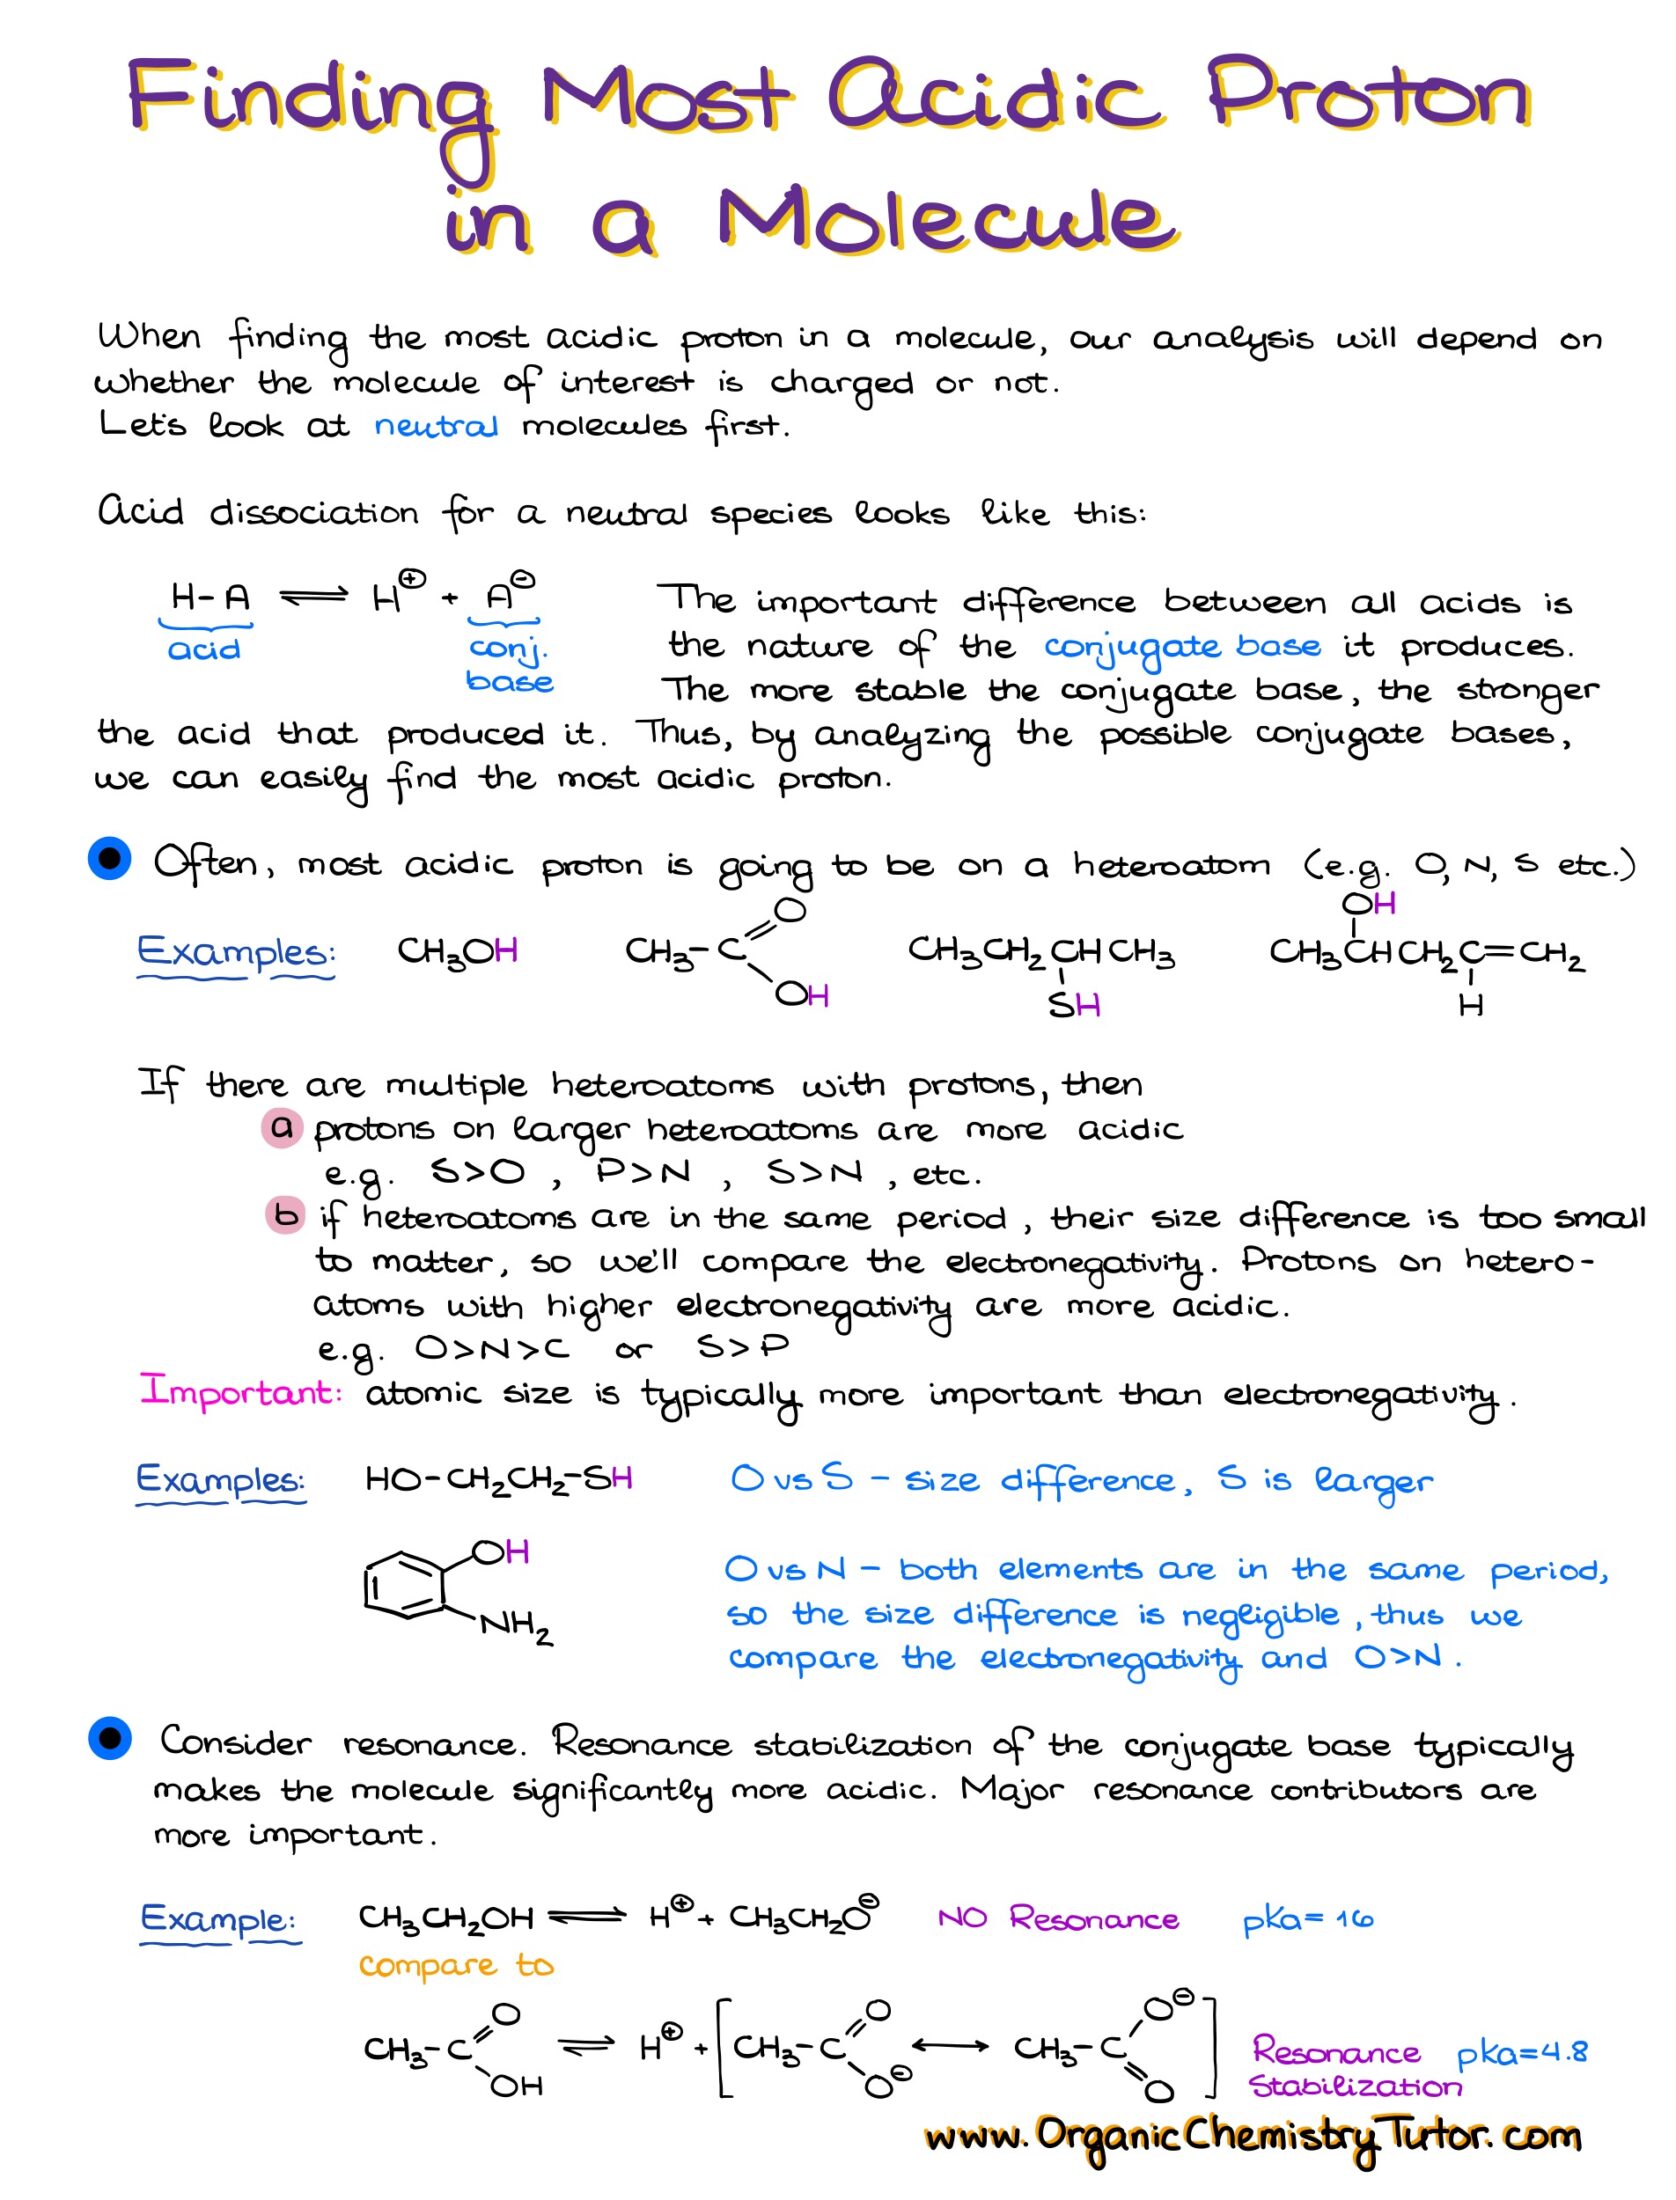 Finding Most Acidic Proton
in a Molecule
When finding the most acidic proton in a molecule, our analysis will depend on
whether the molecule of interest is charged or not.
Let's look at neutral molecules first.
Acid dissociation for a neutral species looks like this:
H-A ⇌ H⊕ + A⊖
acid
conj.
base
The important difference between all acids is
the nature of the conjugate base it produces.
The more stable the conjugate base, the stronger
the acid that produced it. Thus, by analyzing the possible conjugate bases,
we can easily find the most acidic proton.
Often, most acidic proton is going to be on a heteroatom (e.g. O, N, S etc.)
Examples:
CH₃OH
CH₃-C
O
OH
CH₃CH₂CHCH₃
SH
OH
CH₃CHCH₂C=CH₂
H
If there are multiple heteroatoms with protons, then
a protons on larger heteroatoms are more acidic
e.g. S>O, P>N, S>N, etc.
b if heteroatoms are in the same period, their size difference is too small
to matter, so we'll compare the electronegativity. Protons on hetero-
atoms with higher electronegativity are more acidic.
e.g. O>N>C or S>P
Important: atomic size is typically more important than electronegativity.
Examples:
HO-CH₂CH₂-SH
O vs S - size difference, S is larger
OH
NH₂
O vs N - both elements are in the same period,
so the size difference is negligible, thus we
compare the electronegativity and O>N.
Consider resonance. Resonance stabilization of the conjugate base typically
makes the molecule significantly more acidic. Major resonance contributors are
more important.
Example:
CH₃CH₂OH ⇌ H⊕ + CH₃CH₂O⊖
NO Resonance
pka= 16
compare to
CH₃-C
O
OH
⇌ H⊕ +
[CH₃-C
O
O⊖
↔
CH₃-C
O⊖
O
]
Resonance
Stabilization
pka=4.8
www.OrganicChemistryTutor.com